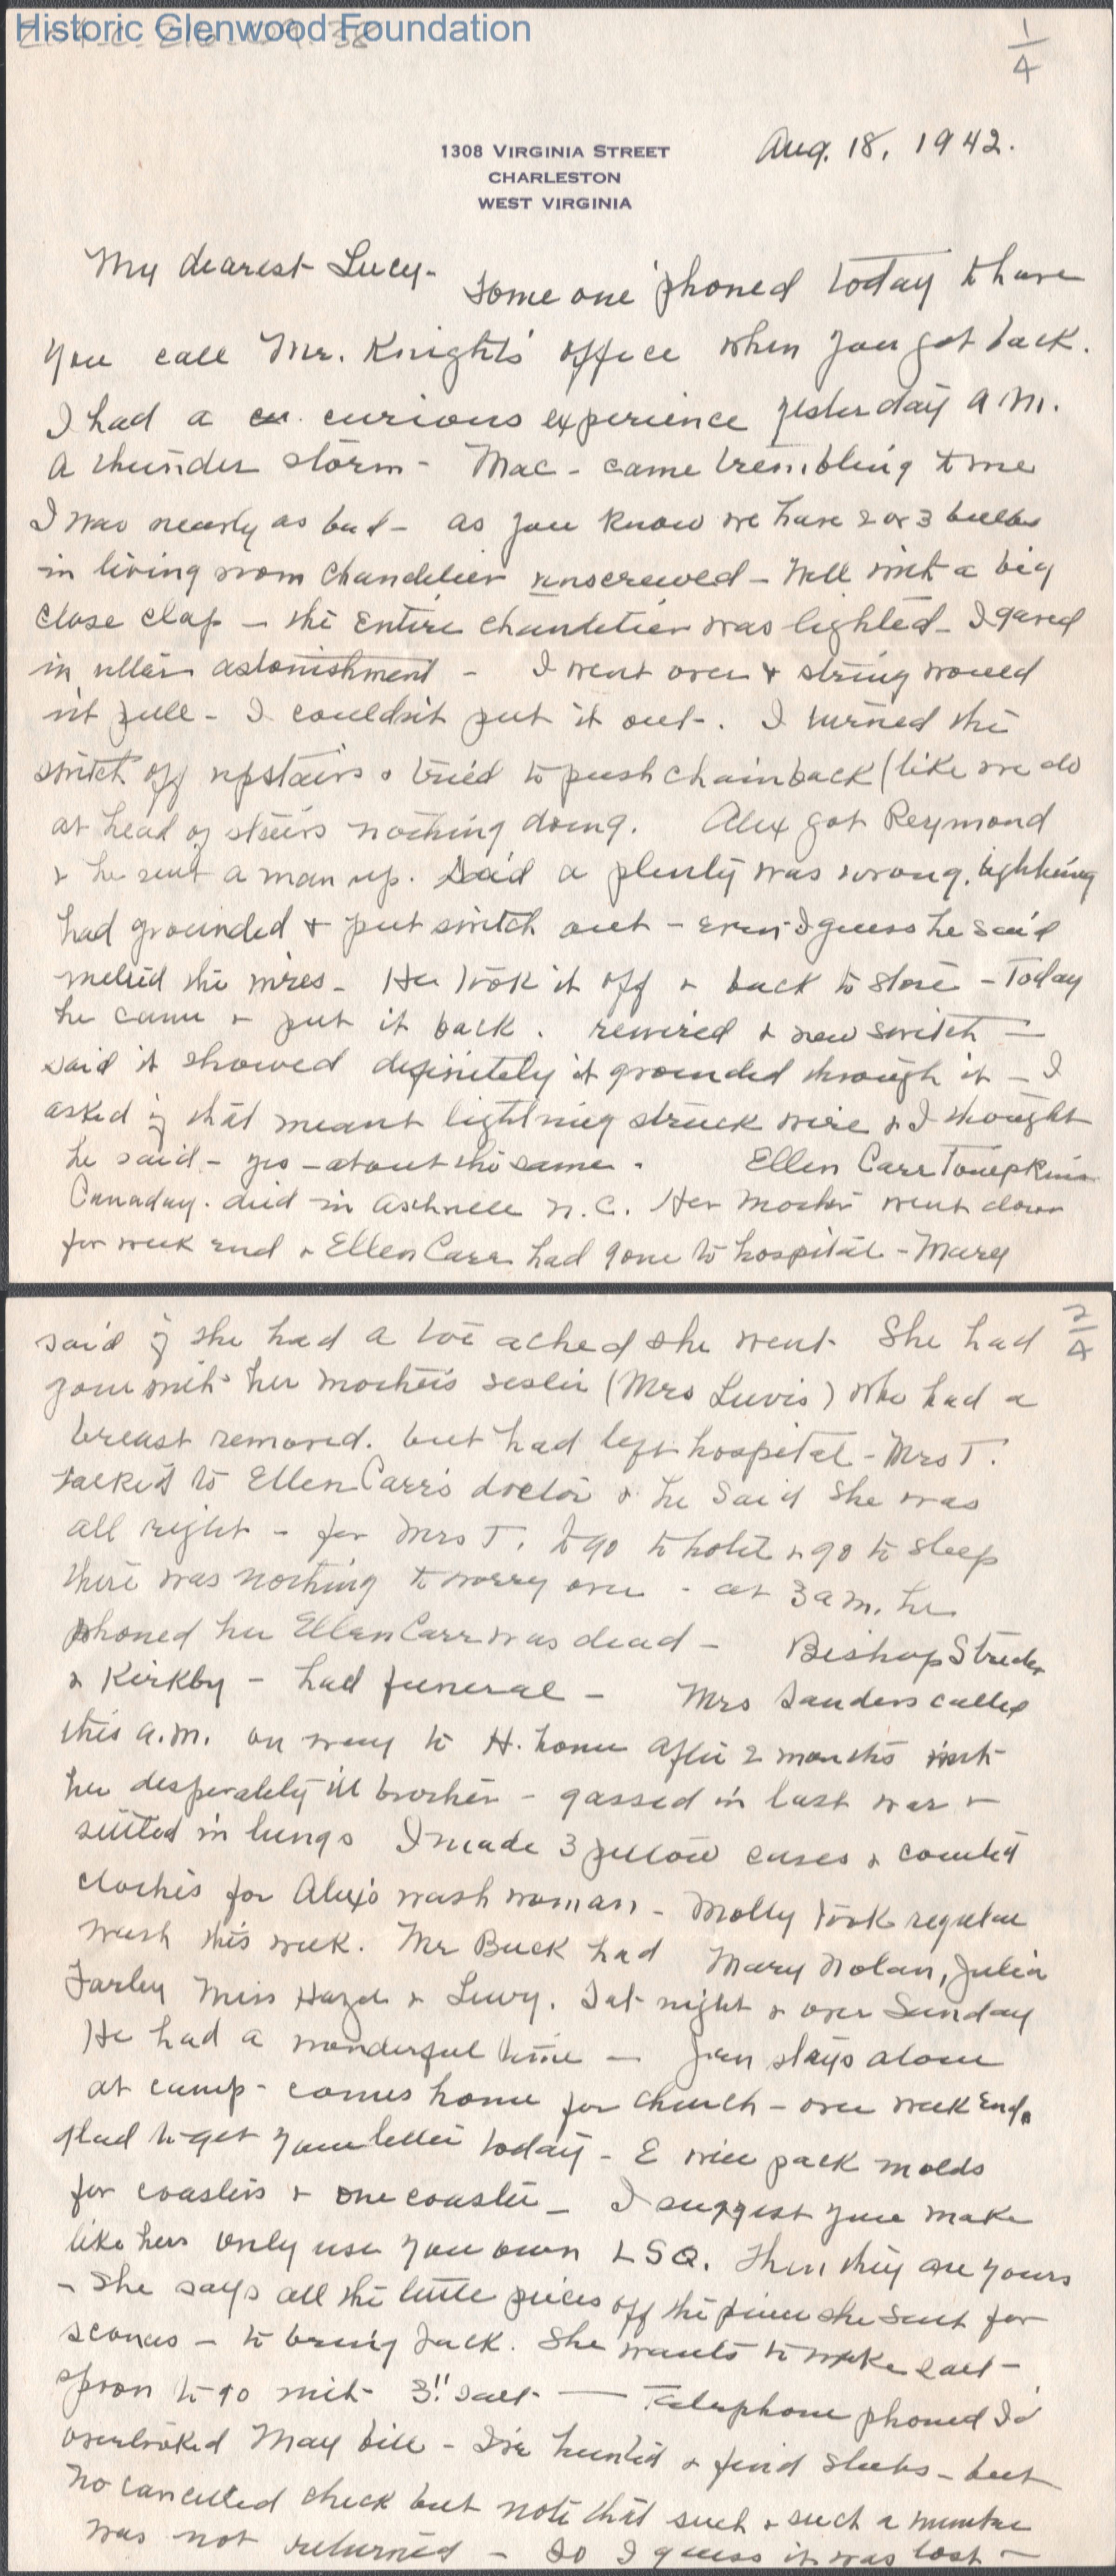 Historic Glenwood Foundation
1/4
1308 VIRGINIA STREET
CHARLESTON
WEST VIRGINIA
Aug. 18, 1942.
My dearest Lucy-
Some one 'phoned today to have
you call Mr. Knight's office when you got back.
I had a cu. curious experience yesterday A.M.
A thunder storm - Mac - came trembling to me
I was nearly as bad - as you know we have 2 or 3 bulbs
in living room chandelier unscrewed - Well with a big
close clap - the entire chandelier was lighted - I gazed
in utter astonishment - I went over & string would
n't pull - I couldn't put it out. I turned the
switch off upstairs & tried to push chain back (like we do
at head of stairs nothing doing. Alex got Reymond
& he sent a man up. Said a plenty was wrong. lightning
had grounded & put switch out - even I guess he said
melted the wires - He took it off & back to store - Today
he came & put it back. rewired & new switch -
said it showed definitely it grounded through it - I
asked if that meant lightning struck wire & I thought
he said - yes - about the same. Ellen Carr Tompkins
Canaday. died in Asheville N.C. Her mother went down
for week end & Ellen Carr had gone to hospital - Mary
2/4
said if she had a toe ached she went. She had
gone with her mother's sister (Mrs Luvis) who had a
breast removed. but had left hospital - Mrs T.
talked to Ellen Carr's doctor & he said she was
all right - for Mrs T. to go to hotel & go to sleep
there was nothing to worry over - at 3 a m. he
phoned her Ellen Carr was dead - Bishop Strider
& Kirkby - had funeral - Mrs Sanders called
this a.m. on way to H. home after 2 months with
her desperately ill brother - gassed in last war &
settled in lungs I made 3 pillow cases & counted
clothes for Alex's wash woman - Molly took regular
wash this week. Mr Buck had Mary Nolan, Julia
Farley Miss Hazel & Lucy. Sat night & over Sunday
He had a wonderful time - Jean stays alone
at camp - comes home for church - over week end.
Glad to get your letter today - E will pack molds
for coasters & one coaster - I suggest you make
like hers only use your own L S Q. Then they are yours
- She says all the little pieces off the piece she sent for
sconces - to bring back. She wants to make salt -
spoon to go with 3" salt - Telephone phoned I'd
overlooked May bill - I've hunted & find stubs - but
no cancelled check but note that such & such a number
was not returned - so I guess it was lost -